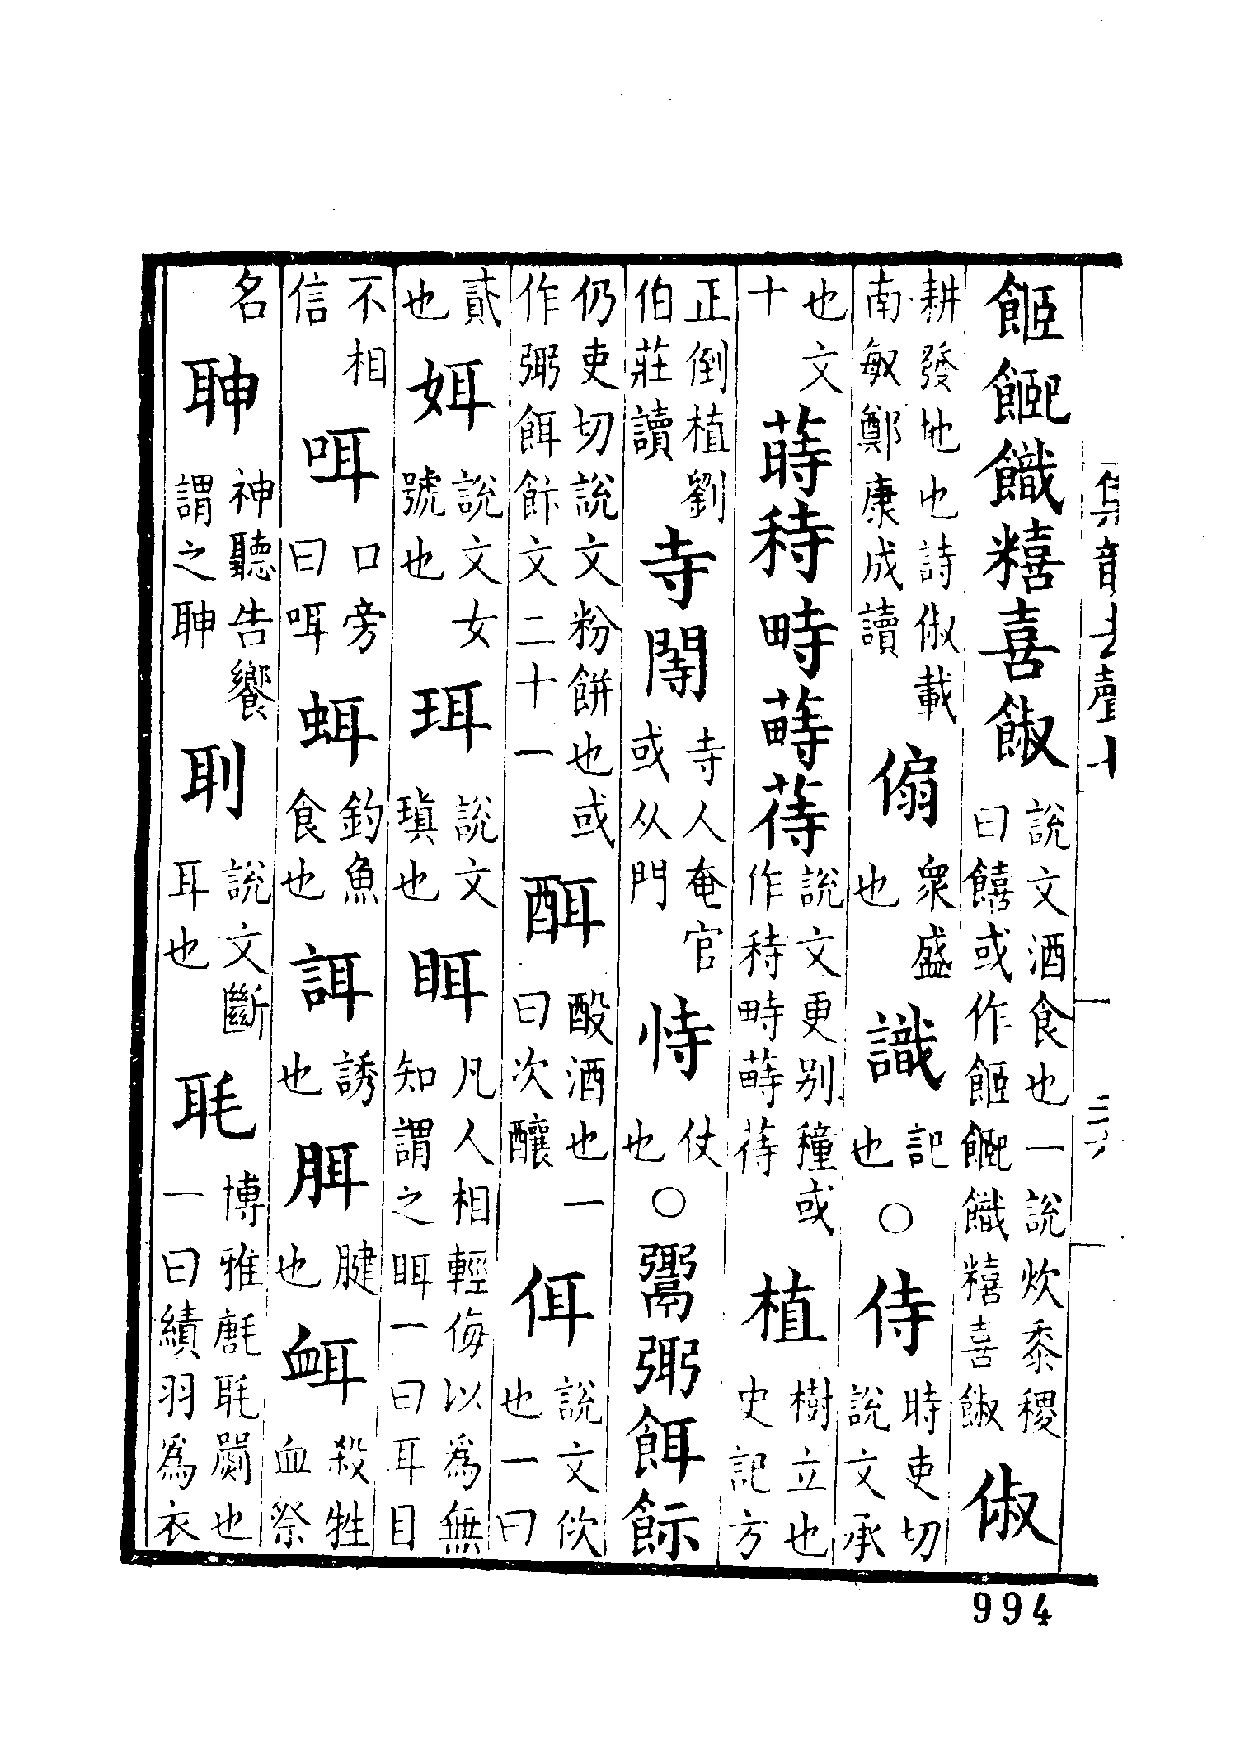 集韻去聲七
糦喜 說文酒食也一說炊黍稷曰饎或作糦喜 俶
耕發地也詩俶載南畝鄭康成讀 傓 衆盛也 識 記也 ○ 侍 時吏切說文承
也文十 蒔秲畤 說文更别穜或作秲畤 植 樹立也史記方
正倒植劉伯莊讀 寺 寺人奄官或从門 恃 仗也 ○ 餌
仍吏切說文粉餅也或作餌文二十一 酘酒也一曰次釀 佴 說文佽也一曰
貳也 㛅 說文女號也 珥 說文瑱也 眲 凡人相輕侮以爲無知謂之眲一曰耳目
不相信 咡 口旁曰咡 釣魚食也 誀 誘也 腱也 衈 殺牲血祭
名 神聽告饗謂之 刵 說文斷耳也 毦 博雅毦罽也一曰績羽爲衣
994